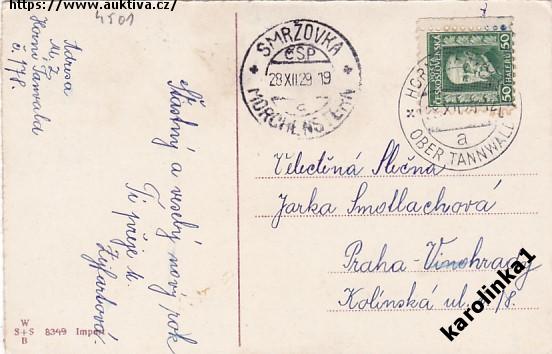 https://www.auktiva.cz/
4501
Adresa
M. Z.
Horní Tanvald
č. 178.
Šťastný a veselý nový rok
Ti přeje
Zyfartová.
SMRŽOVKA
ČSP
28 XII 29 19
a
MORCHENSTERN
POŠTA
ČESKOSLOVENSKÁ
50 HALÉŘŮ 50
a
OBER TANNWALD
Velectěná Slečna
Jarka Smotlachová
Praha-Vinohrady
Kolínská ul.
W
S+S 8349 Import
B
karolinka1